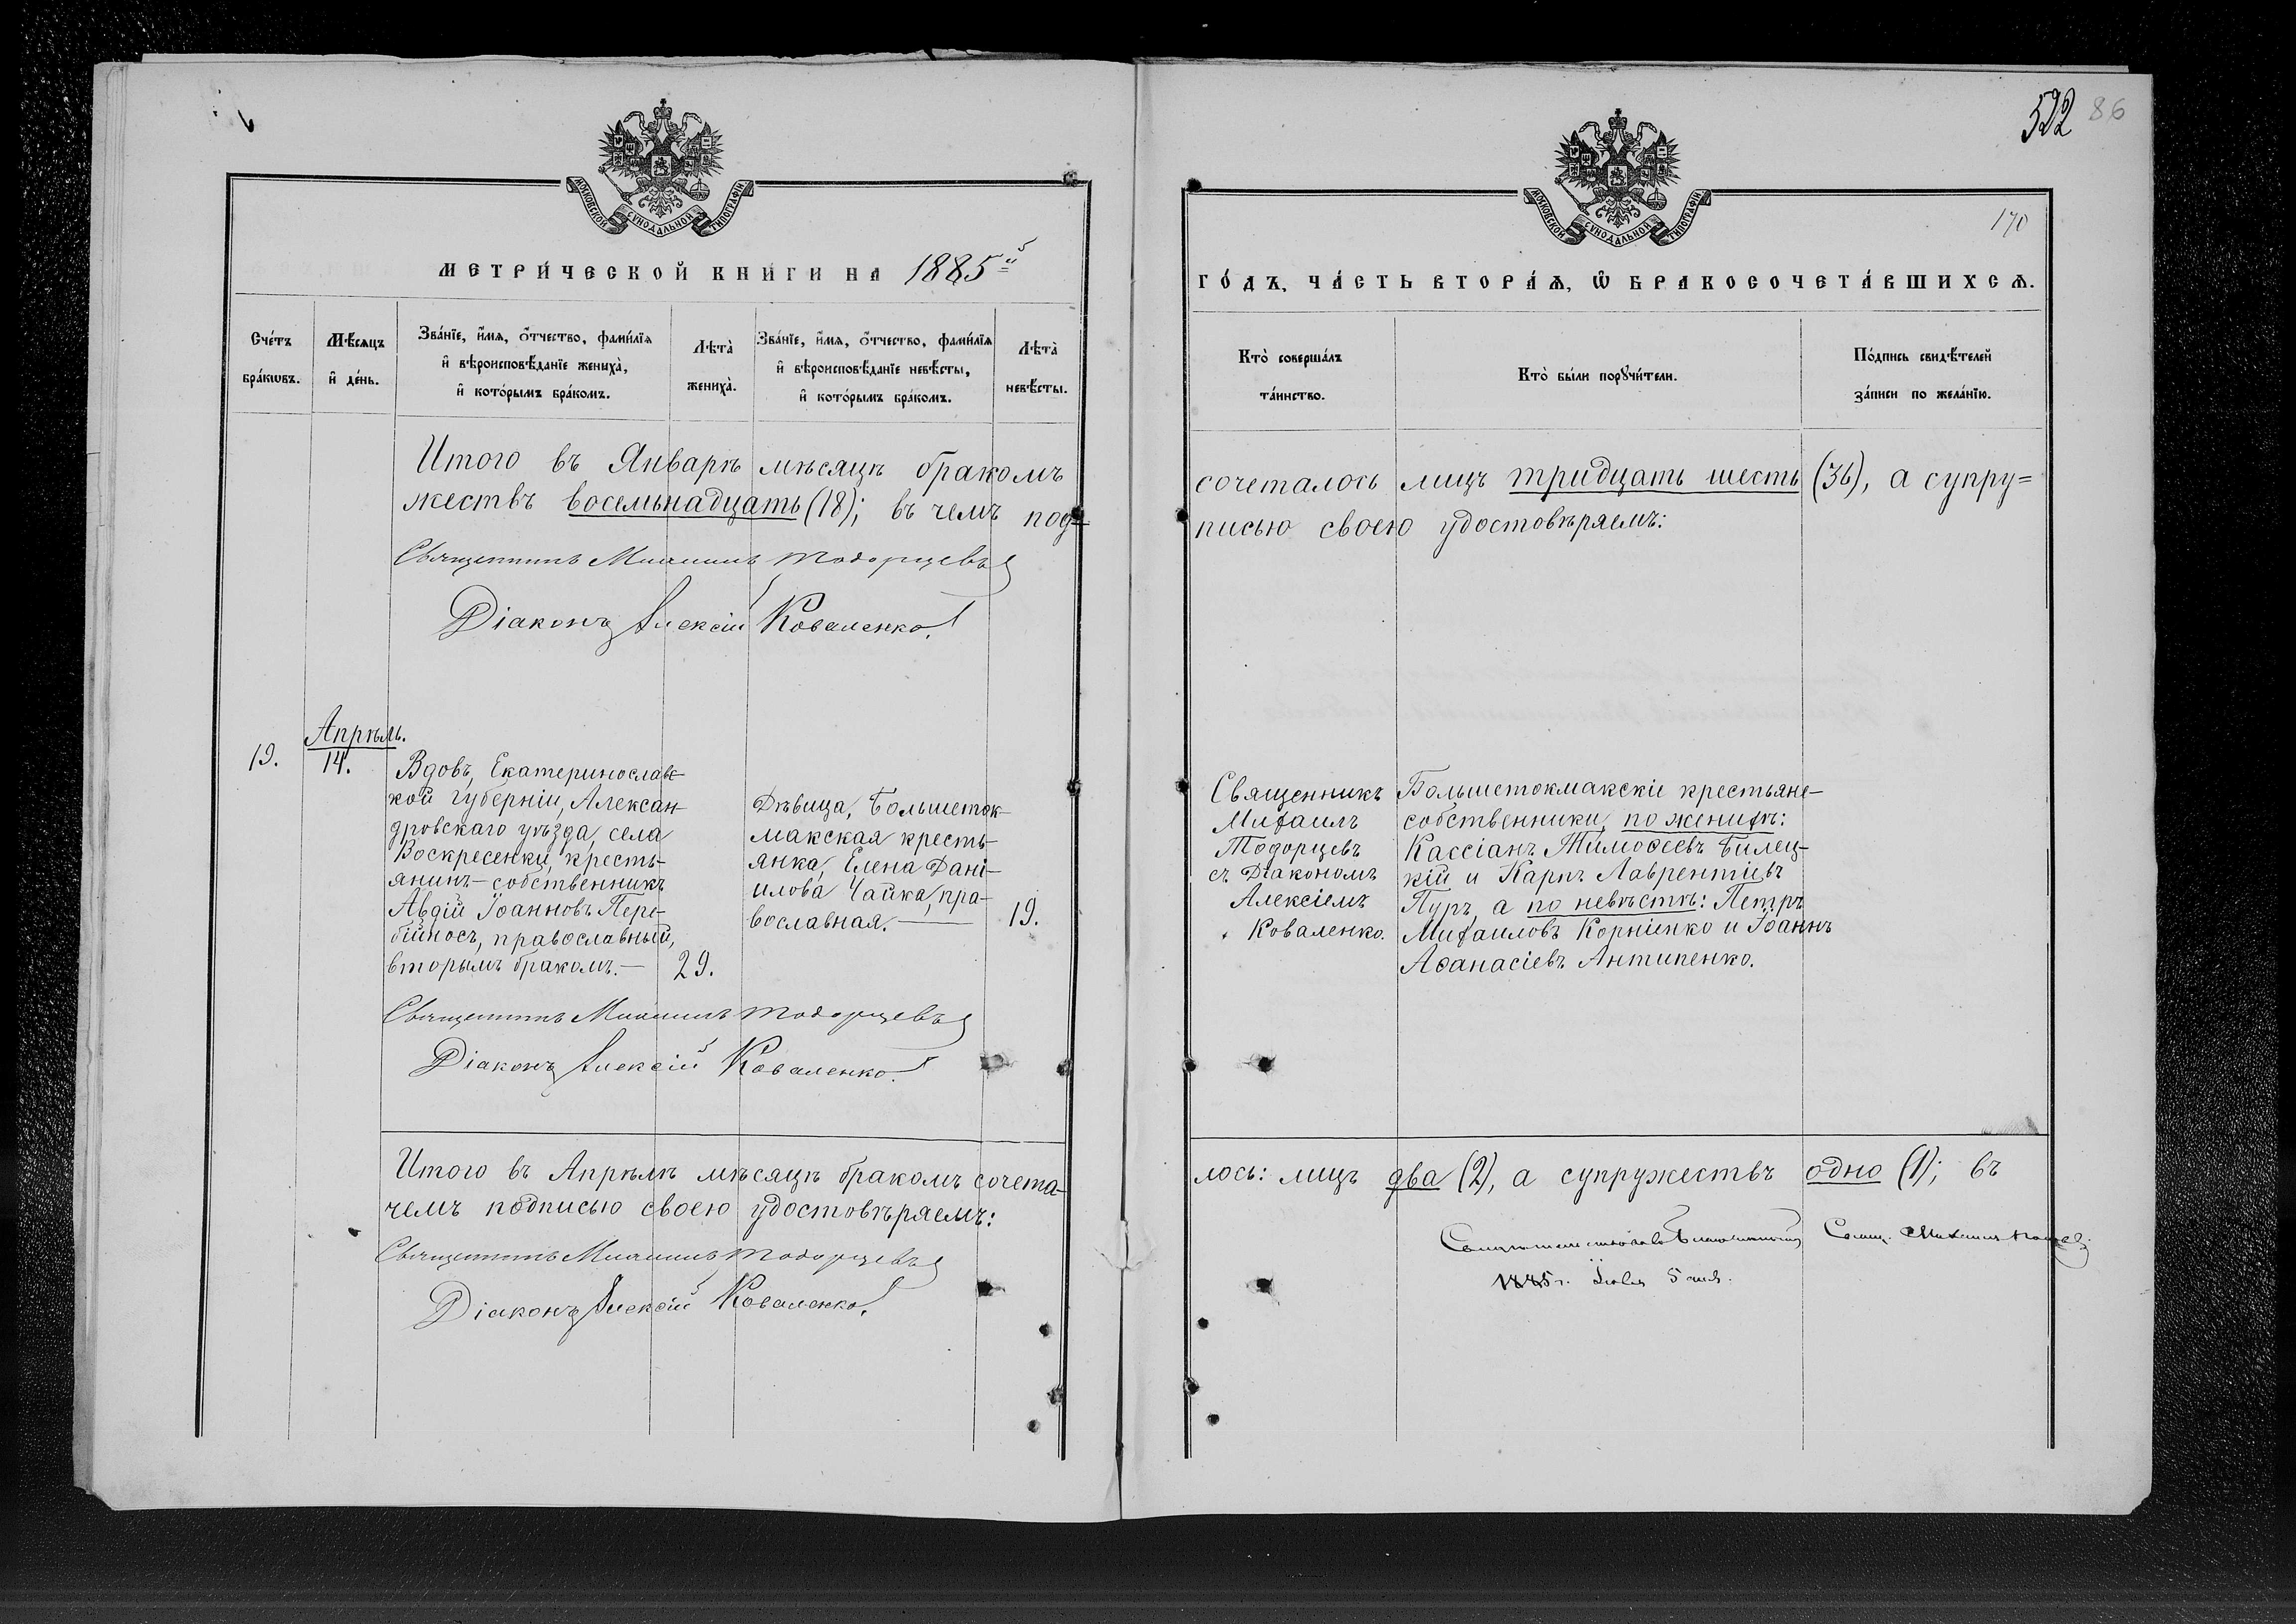 522 86
МОСКОВСКОЙ СУНОДАЛЬНОЙ ТИПОГРАФІИ
МЕТРИ́ЧЕСКОЙ КНИГИ НА 1885й
Сче́тъ бра́кωвъ.
Мѣ́сяцъ и҆ де́нь.
Зва́нїе, и҆́мя, ѻ҆́тчество, фами́лїя
и҆ вѣроисповѣ́данїе жениха̀,
и҆ кото́рымъ бра́комъ.
Лѣта̀ жениха̀.
Зва́нїе, и҆́мя, ѻ҆́тчество, фами́лїя
и҆ вѣроисповѣ́данїе невѣ́сты,
и҆ кото́рымъ бра́комъ.
Лѣта̀ невѣ́сты.
Итого въ Январѣ мѣсяцѣ бракомъ
жествъ восемьнадцать (18); въ чемъ под=
Священникъ Михаилъ Тодорцевъ
Діаконъ Алексій Коваленко.
Апрѣль.
19.
14.
Вдовъ, Екатеринославс-
кой губерніи, Алексан-
дровскаго уѣзда, села
Воскресенки, кресть-
янинъ-собственникъ
Авдій Іоанновъ Пере-
бійносъ, православный,
вторымъ бракомъ.—
29.
Дѣвица, Большеток-
макская кресть-
янка, Елена Дані-
илова Чайка, пра-
вославная.—
19.
Священникъ Михаилъ Тодорцевъ
Діаконъ Алексій Коваленко.
Итого въ Апрѣлѣ мѣсяцѣ бракомъ сочета-
чемъ подписью своею удостовѣряемъ:
Священникъ Михаилъ Тодорцевъ
Діаконъ Алексій Коваленко.
МОСКОВСКОЙ СУНОДАЛЬНОЙ ТИПОГРАФІИ
170
ГО́ДЪ, ЧА́СТЬ ВТОРА́Ѧ, Ѽ БРАКОСОЧЕТА́ВШИХСѦ.
Кто̀ соверша́лъ
та́инство.
Кто̀ бы́ли порꙋчи́тели.
По́дпись свидѣ́телей
за́писи по жела́нїю.
сочеталось лицъ тридцать шесть (36), а супру=
писью своею удостовѣряемъ:
Священникъ
Михаилъ
Тодорцевъ
съ Діакономъ
Алексіемъ
Коваленко.
Большетокмакскіе крестьяне-
собственники, по женихѣ:
Кассіанъ Тимоѳеевъ Билец-
кій и Карпъ Лаврентіевъ
Пуръ, а по невѣстѣ: Петръ
Михаиловъ Корніенко и Іоаннъ
Аѳанасіевъ Антипенко.
лось: лицъ два (2), а супружествъ одно (1); въ
1885 г. Іюля 5 дня.